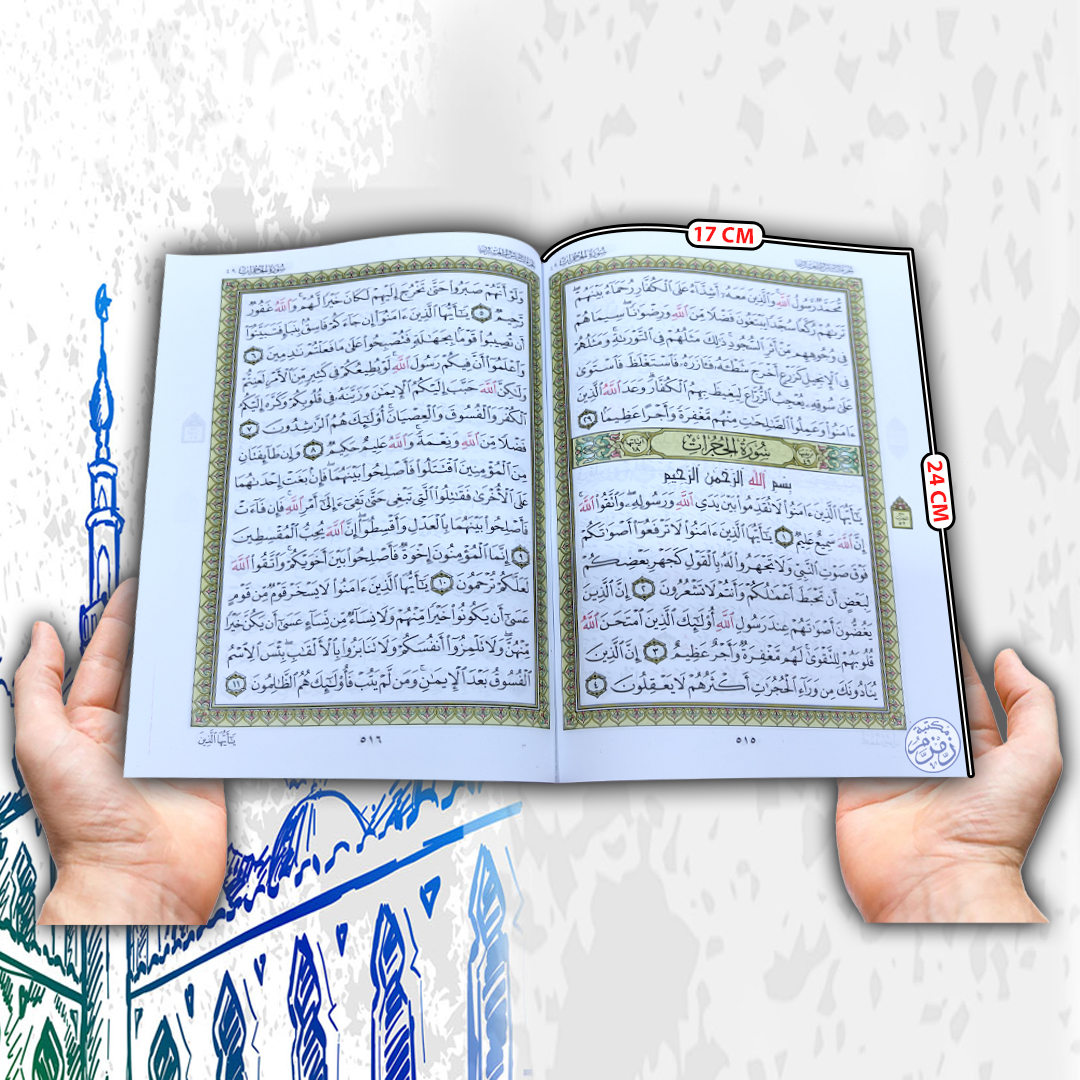 17 CM
24 CM
سُورَةُ الحُجُرَاتِ ٤٩
مُّحَمَّدٌ رَّسُولُ ٱللَّهِ وَٱلَّذِينَ مَعَهُۥٓ أَشِدَّآءُ عَلَى ٱلْكُفَّارِ رُحَمَآءُ بَيْنَهُمْ
تَرَىٰهُمْ رُكَّعًا سُجَّدًا يَبْتَغُونَ فَضْلًا مِّنَ ٱللَّهِ وَرِضْوَٰنًا سِيمَاهُمْ
فِى وُجُوهِهِم مِّنْ أَثَرِ ٱلسُّجُودِ ذَٰلِكَ مَثَلُهُمْ فِى ٱلتَّوْرَىٰةِ وَمَثَلُهُمْ
فِى ٱلْإِنجِيلِ كَزَرْعٍ أَخْرَجَ شَطْـَٔهُۥ فَـَٔازَرَهُۥ فَٱسْتَغْلَظَ فَٱسْتَوَىٰ
عَلَىٰ سُوقِهِۦ يُعْجِبُ ٱلزُّرَّاعَ لِيَغِيظَ بِهِمُ ٱلْكُفَّارَ وَعَدَ ٱللَّهُ ٱلَّذِينَ
ءَامَنُوا۟ وَعَمِلُوا۟ ٱلصَّٰلِحَٰتِ مِنْهُم مَّغْفِرَةً وَأَجْرًا عَظِيمًۢا ٢٩
سُورَةُ الحُجُرَاتِ
بِسْمِ ٱللَّهِ ٱلرَّحْمَٰنِ ٱلرَّحِيمِ
يَٰٓأَيُّهَا ٱلَّذِينَ ءَامَنُوا۟ لَا تُقَدِّمُوا۟ بَيْنَ يَدَىِ ٱللَّهِ وَرَسُولِهِۦ وَٱتَّقُوا۟ ٱللَّهَ
إِنَّ ٱللَّهَ سَمِيعٌ عَلِيمٌ ١ يَٰٓأَيُّهَا ٱلَّذِينَ ءَامَنُوا۟ لَا تَرْفَعُوٓا۟ أَصْوَٰتَكُمْ
فَوْقَ صَوْتِ ٱلنَّبِىِّ وَلَا تَجْهَرُوا۟ لَهُۥ بِٱلْقَوْلِ كَجَهْرِ بَعْضِكُمْ
لِبَعْضٍ أَن تَحْبَطَ أَعْمَٰلُكُمْ وَأَنتُمْ لَا تَشْعُرُونَ ٢ إِنَّ ٱلَّذِينَ
يَغُضُّونَ أَصْوَٰتَهُمْ عِندَ رَسُولِ ٱللَّهِ أُو۟لَٰٓئِكَ ٱلَّذِينَ ٱمْتَحَنَ ٱللَّهُ
قُلُوبَهُمْ لِلتَّقْوَىٰ لَهُم مَّغْفِرَةٌ وَأَجْرٌ عَظِيمٌ ٣ إِنَّ ٱلَّذِينَ
يُنَادُونَكَ مِن وَرَآءِ ٱلْحُجُرَٰتِ أَكْثَرُهُمْ لَا يَعْقِلُونَ ٤
٥١٥
مكتبة
زمزم
سُورَةُ الحُجُرَاتِ ٤٩
وَلَوْ أَنَّهُمْ صَبَرُوا۟ حَتَّىٰ تَخْرُجَ إِلَيْهِمْ لَكَانَ خَيْرًا لَّهُمْ وَٱللَّهُ غَفُورٌ
رَّحِيمٌ ٥ يَٰٓأَيُّهَا ٱلَّذِينَ ءَامَنُوٓا۟ إِن جَآءَكُمْ فَاسِقٌۢ بِنَبَإٍ فَتَبَيَّنُوٓا۟
أَن تُصِيبُوا۟ قَوْمًۢا بِجَهَٰلَةٍ فَتُصْبِحُوا۟ عَلَىٰ مَا فَعَلْتُمْ نَٰدِمِينَ ٦
وَٱعْلَمُوٓا۟ أَنَّ فِيكُمْ رَسُولَ ٱللَّهِ لَوْ يُطِيعُكُمْ فِى كَثِيرٍ مِّنَ ٱلْأَمْرِ لَعَنِتُّمْ
وَلَٰكِنَّ ٱللَّهَ حَبَّبَ إِلَيْكُمُ ٱلْإِيمَٰنَ وَزَيَّنَهُۥ فِى قُلُوبِكُمْ وَكَرَّهَ إِلَيْكُمُ
ٱلْكُفْرَ وَٱلْفُسُوقَ وَٱلْعِصْيَانَ أُو۟لَٰٓئِكَ هُمُ ٱلرَّٰشِدُونَ ٧
فَضْلًا مِّنَ ٱللَّهِ وَنِعْمَةً وَٱللَّهُ عَلِيمٌ حَكِيمٌ ٨ وَإِن طَآئِفَتَانِ
مِنَ ٱلْمُؤْمِنِينَ ٱقْتَتَلُوا۟ فَأَصْلِحُوا۟ بَيْنَهُمَا فَإِنۢ بَغَتْ إِحْدَىٰهُمَا
عَلَى ٱلْأُخْرَىٰ فَقَٰتِلُوا۟ ٱلَّتِى تَبْغِى حَتَّىٰ تَفِىٓءَ إِلَىٰٓ أَمْرِ ٱللَّهِ فَإِن فَآءَتْ
فَأَصْلِحُوا۟ بَيْنَهُمَا بِٱلْعَدْلِ وَأَقْسِطُوٓا۟ إِنَّ ٱللَّهَ يُحِبُّ ٱلْمُقْسِطِينَ
٩ إِنَّمَا ٱلْمُؤْمِنُونَ إِخْوَةٌ فَأَصْلِحُوا۟ بَيْنَ أَخَوَيْكُمْ وَٱتَّقُوا۟ ٱللَّهَ
لَعَلَّكُمْ تُرْحَمُونَ ١٠ يَٰٓأَيُّهَا ٱلَّذِينَ ءَامَنُوا۟ لَا يَسْخَرْ قَوْمٌ مِّن قَوْمٍ
عَسَىٰٓ أَن يَكُونُوا۟ خَيْرًا مِّنْهُمْ وَلَا نِسَآءٌ مِّن نِّسَآءٍ عَسَىٰٓ أَن يَكُنَّ خَيْرًا
مِّنْهُنَّ وَلَا تَلْمِزُوٓا۟ أَنفُسَكُمْ وَلَا تَنَابَزُوا۟ بِٱلْأَلْقَٰبِ بِئْسَ ٱلِٱسْمُ
ٱلْفُسُوقُ بَعْدَ ٱلْإِيمَٰنِ وَمَن لَّمْ يَتُبْ فَأُو۟لَٰٓئِكَ هُمُ ٱلظَّٰلِمُونَ ١١
يَٰٓأَيُّهَا ٱلَّذِينَ
٥١٦